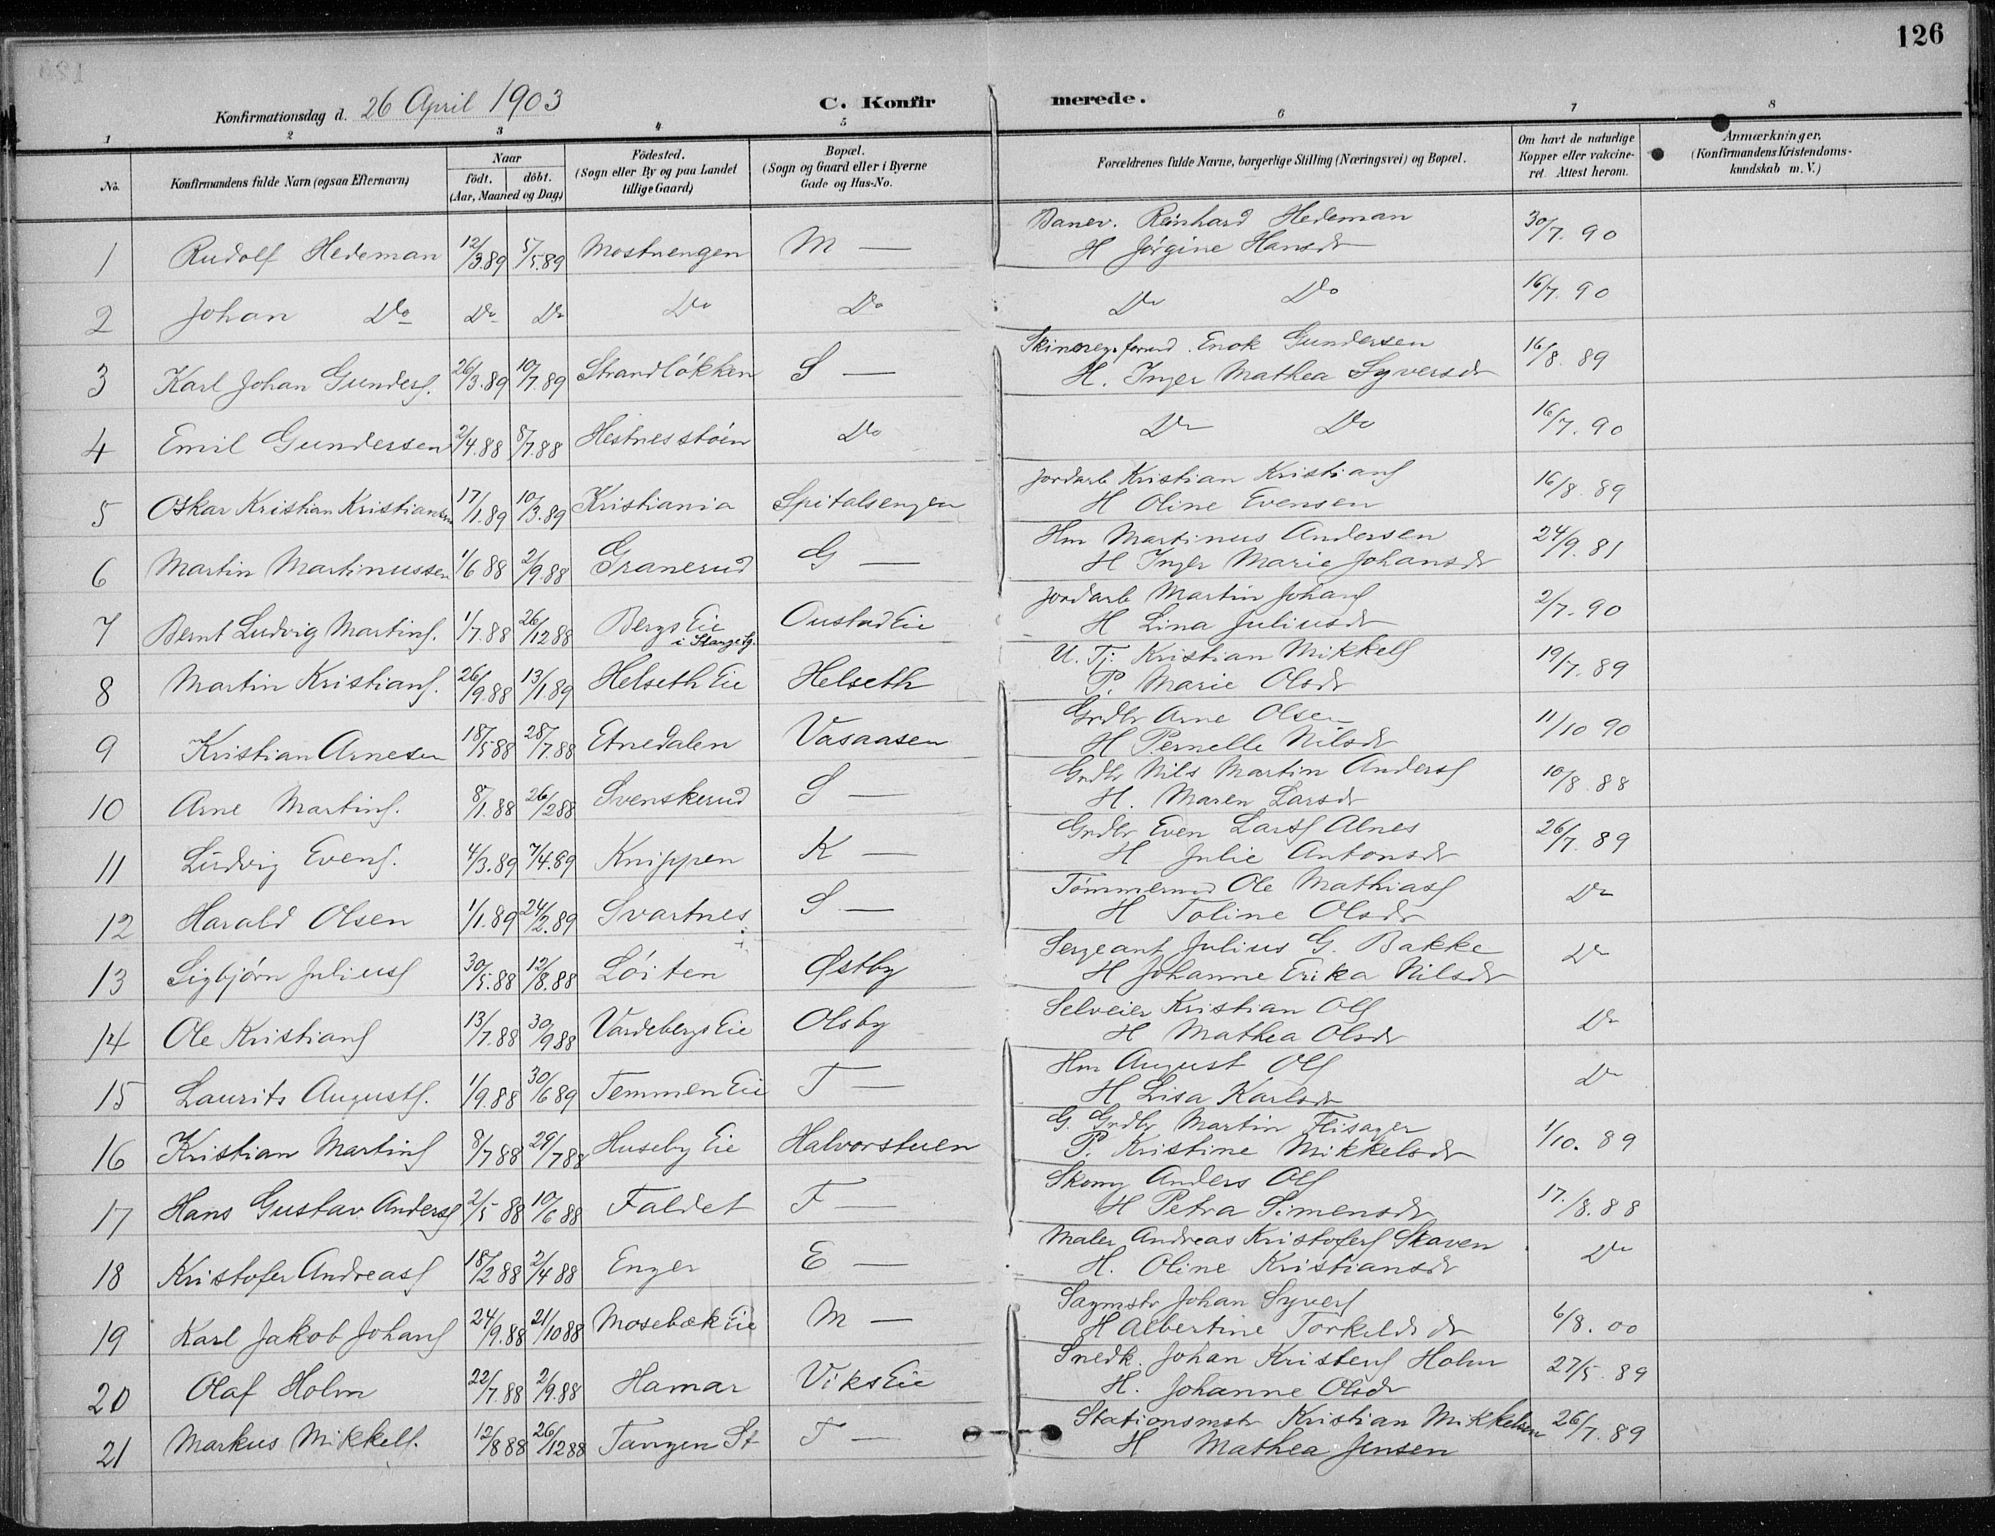 126
Konfirmationsdag d. 26 April 1903 C. Konfirmerede.
1 2 3 4 5 6 7 8
No. Konfirmandens fulde Navn (ogsaa Efternavn) Naar födt. döbt. (Aar, Maaned og Dag) Födested. (Sogn eller By og paa Landet tillige Gaard) Bopæl. (Sogn og Gaard eller i Byerne Gade og Hus-No. Forældrenes fulde Navne, borgerlige Stilling (Næringsvei) og Bopæl. Om havt de naturlige Kopper eller vakcineret. Attest herom. Anmærkninger. (Konfirmandens Kristendomskundskab m. V.)
1 Rudolf Hedeman 12/3.89 5/5.89 Mostuengen M — Banev. Reinhard Hedeman 30/7. 90
H Jörgine Hansdr
2 Johan Do Do Do Do Do Do Do 16/7. 90
3 Karl Johan Gunders. 26/3.89 10/7.89 Strandlökken S — Enok Gundersen 16/8. 89
H. Inger Mathea Syversdr
4 Emil Gundersen 2/4.88 8/7.88 Hestnesstöen Do Do Do 16/7. 90
5 Oskar Kristian Kristiansen 17/1.89 10/3.89 Kristiania Spitalsengen Jordarb Kristian Kristians 16/8. 89
H Oline Evensen
6 Martin Martinussen 1/6 88 2/9.88 Granerud G — Hm Martinus Andersen 24/9. 81
H Inger Marie Johansdr
7 Bernt Ludvig Martins. 1/7.88 26/12 88 Bergs Eie i Stange Sg. Oustad Eie Jordarb Martin Johans 2/7. 90
H Lina Juliusdr
8 Martin Kristians. 26/9.88 13/1.89 Helseth Eie Helseth U. Tj. Kristian Mikkels 19/7. 89
P. Marie Olsdr
9 Kristian Arnesen 18/5 88 28/7.88 Etnedalen Vasaasen Grdbr Arne Olsen 11/10 90
H Pernelle Nilsdr
10 Arne Martins. 8/1.88 26/2 88 Svenskerud S — Grdbr Nils Martin Anders 10/8. 88
H. Maren Larsdr
11 Ludvig Evens. 4/3.89 7/4.89 Knippen K — Grdbr Even Lars Alnes 26/7. 89
H Julie Antonsdr
12 Harald Olsen 1/1.89 24/2.89 Svartnes S — Tömmermd Ole Mathias Do
H Toline Olsdr
13 Sigbjörn Julius 30/5.88 12/8.88 Löiten Østby Sergeant Julius G. Bakke Do
H Johanne Erika Nilsdr
14 Ole Kristians 13/7.88 30/9.88 Vardebergs Eie Olsby Selveier Kristian Ols Do
H Mathea Olsdr
15 Laurits Augusts. 1/9.88 30/6 89 Temmen Eie T — Hm August Ols Do
H Lisa Karlsdr
16 Kristian Martins 8/7 88 29/7 88 Huseby Eie Halvorstuen G. Grdbr Martin Flisager 1/10. 89
P. Kristine Mikkelsdr
17 Hans Gustav Anders 2/5 88 10/6 88 Faldet F — Skom Anders Ols 17./8. 88
H Petra Simensdr
18 Kristofer Andreas 18/2 88 2/4 88 Enger E — Maler Andreas Kristofers Skaven Do
H. Oline Kristiansdr
19 Karl Jakob Johans 24/9.88 21/10 88 Mosebæk Eie M — Sagmstr Johan Syvers 6/8. 00
H Albertine Torkildsdr
20 Olaf Holm 22/7.88 2/9.88 Hamar Viks Eie Snedk. Johan Kristens Holm 27/5. 89
H. Johanne Olsdr
21 Markus Mikkels. 12/8 88 26/12 88 Tangen St T — Stationsmstr Kristian Mikkelsen 26/7. 89
H Mathea Jensen